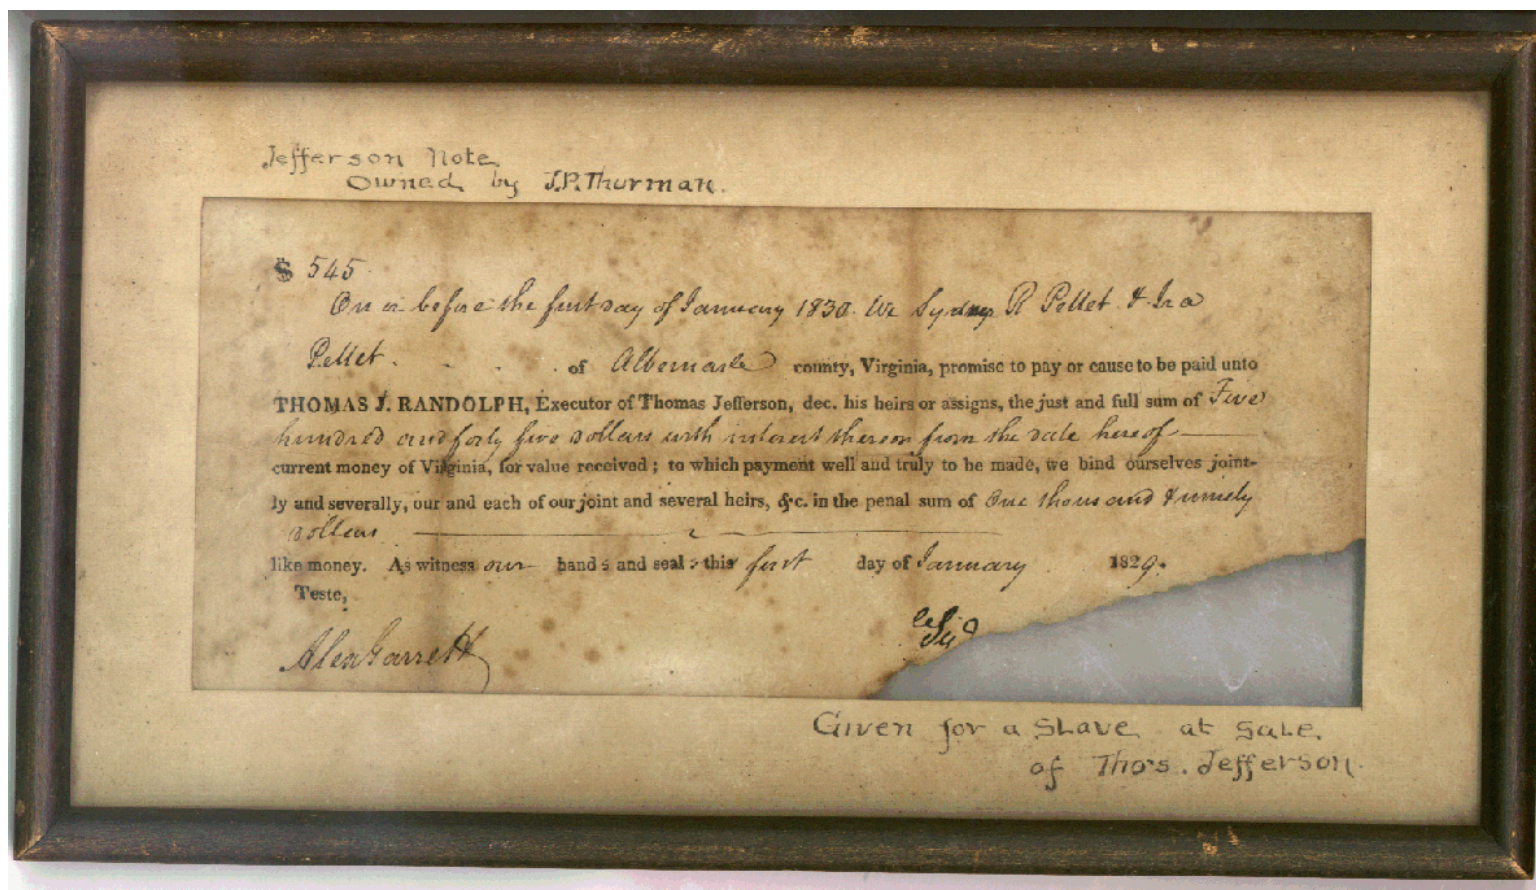 Jefferson Note
Owned by J.P. Thurman.
$ 545
On or before the first day of January 1830. We Sydney R Pellet & Ira
Pellet . . . . of Albemarle county, Virginia, promise to pay or cause to be paid unto
THOMAS J. RANDOLPH, Executor of Thomas Jefferson, dec. his heirs or assigns, the just and full sum of Five
hundred and forty five dollars with interest thereon from the date hereof
current money of Virginia, for value received ; to which payment well and truly to be made, we bind ourselves joint-
ly and severally, our and each of our joint and several heirs, &c. in the penal sum of One thousand & ninety
dollars
like money. As witness our hands and seals this first day of January 1829.
Teste,
Alex Garrett
Given for a Slave at Sale
of Thos. Jefferson.